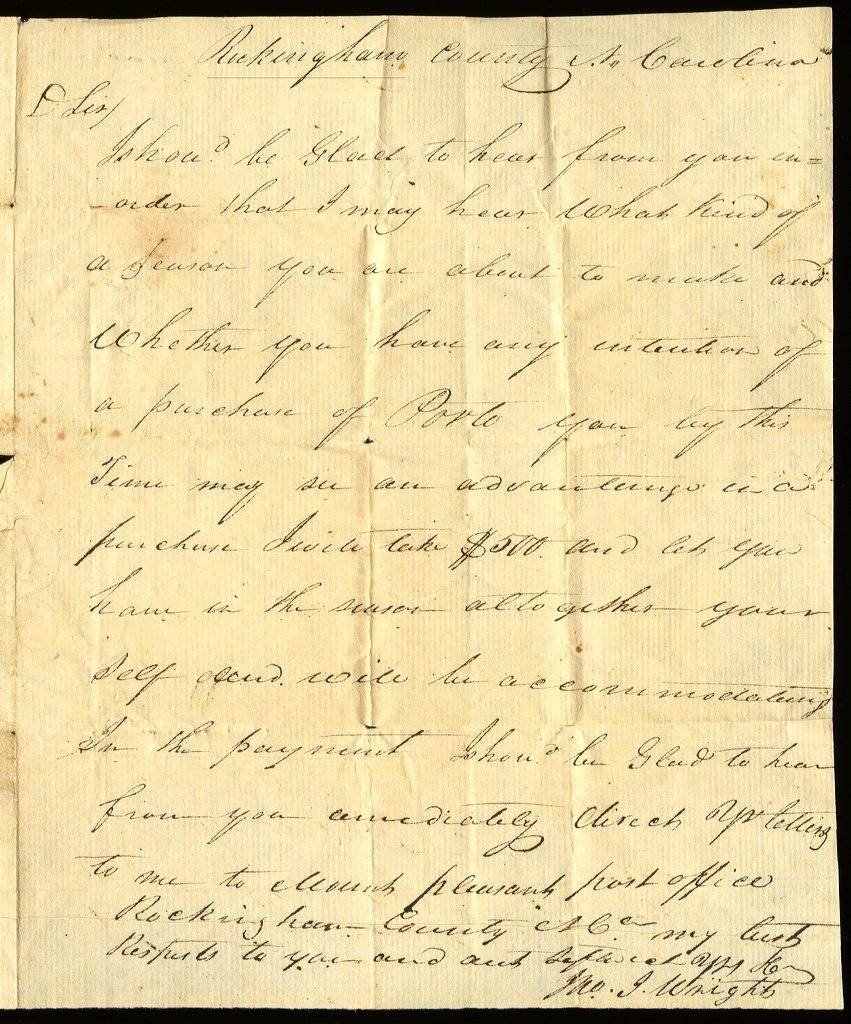 Rockingham County N. Carolina
D Sir/
I shou.d be Glad to hear from you in=
-order that I may hear What Kind of
a Season you are about to make and
Whether you have any intention of
a purchase of Porto you by this
Time may see an advantage in a
purchase I will take $500 and let you
have in the season altogether your
Self and will be accommodating
In the payment I shou.d be Glad to hear
from you amediately direct Yr letters
to me to Mount pleasant post office
Rockingham County N Ca my best
Respects to you and aunt Yrs &c
Jno. J. Wright